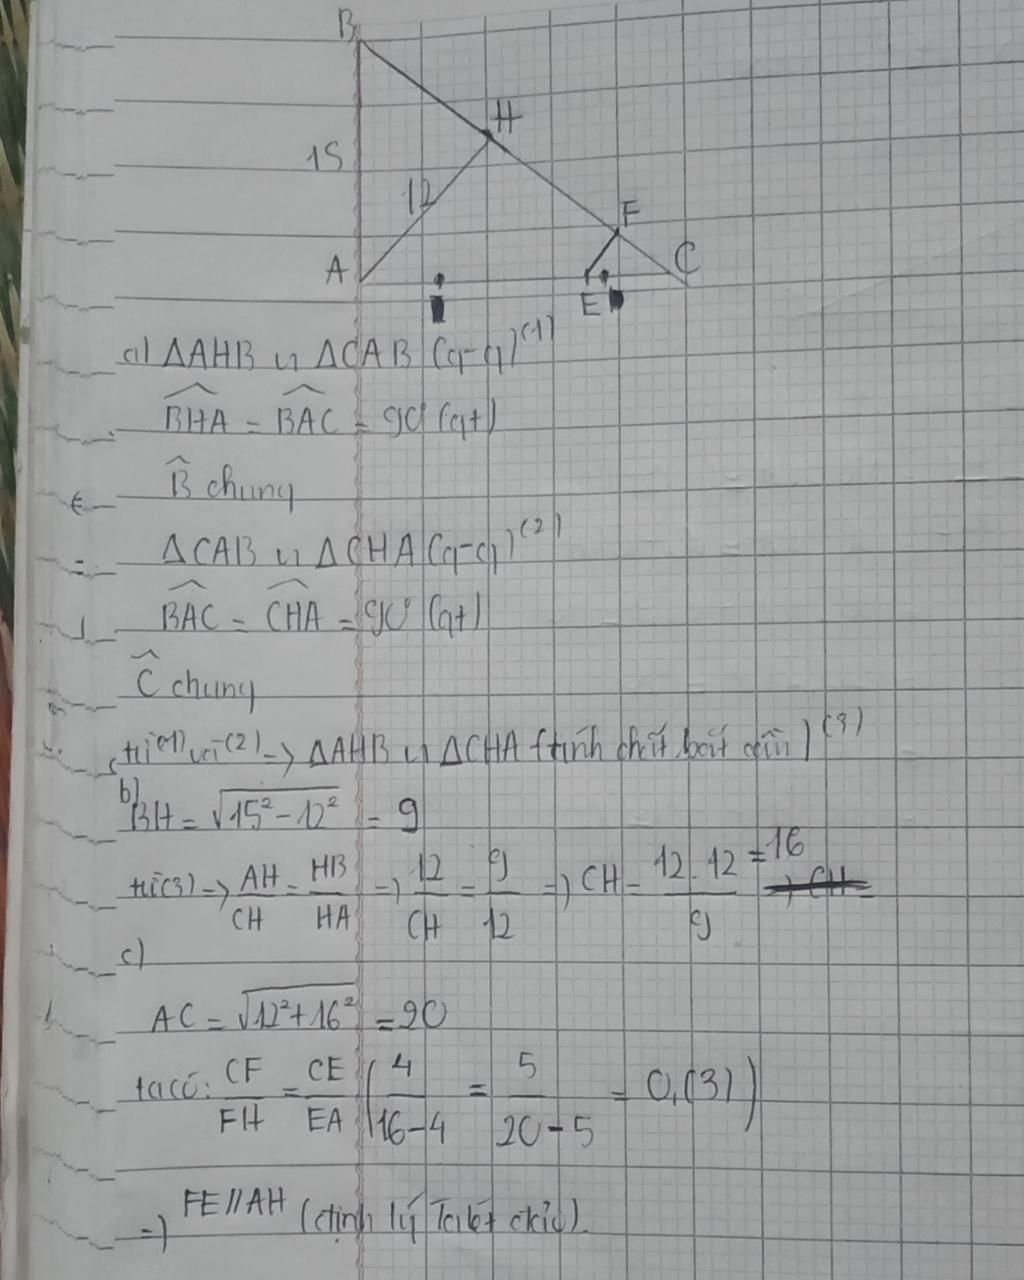 B
H
15
12
F
A
C
E
a) ΔAHB ᔕ ΔCAB (g-g) (1)
BHA = BAC = 90° (gt)
B̂ chung
ΔCAB ᔕ ΔCHA (g-g) (2)
BAC = CHA = 90° (gt)
Ĉ chung
từ (1) và (2) => ΔAHB ᔕ ΔCHA (tính chất bắt cầu) (3)
b)
BH = √(15² - 12²) = 9
từ (3) => AH/CH = HB/HA => 12/CH = 9/12 => CH = 12.12/9 = 16
c)
AC = √(12² + 16²) = 20
ta có: CF/FH = CE/EA (4/16-4 = 5/20-5 = 0,(3))
=> FE // AH (định lý Talet đảo).